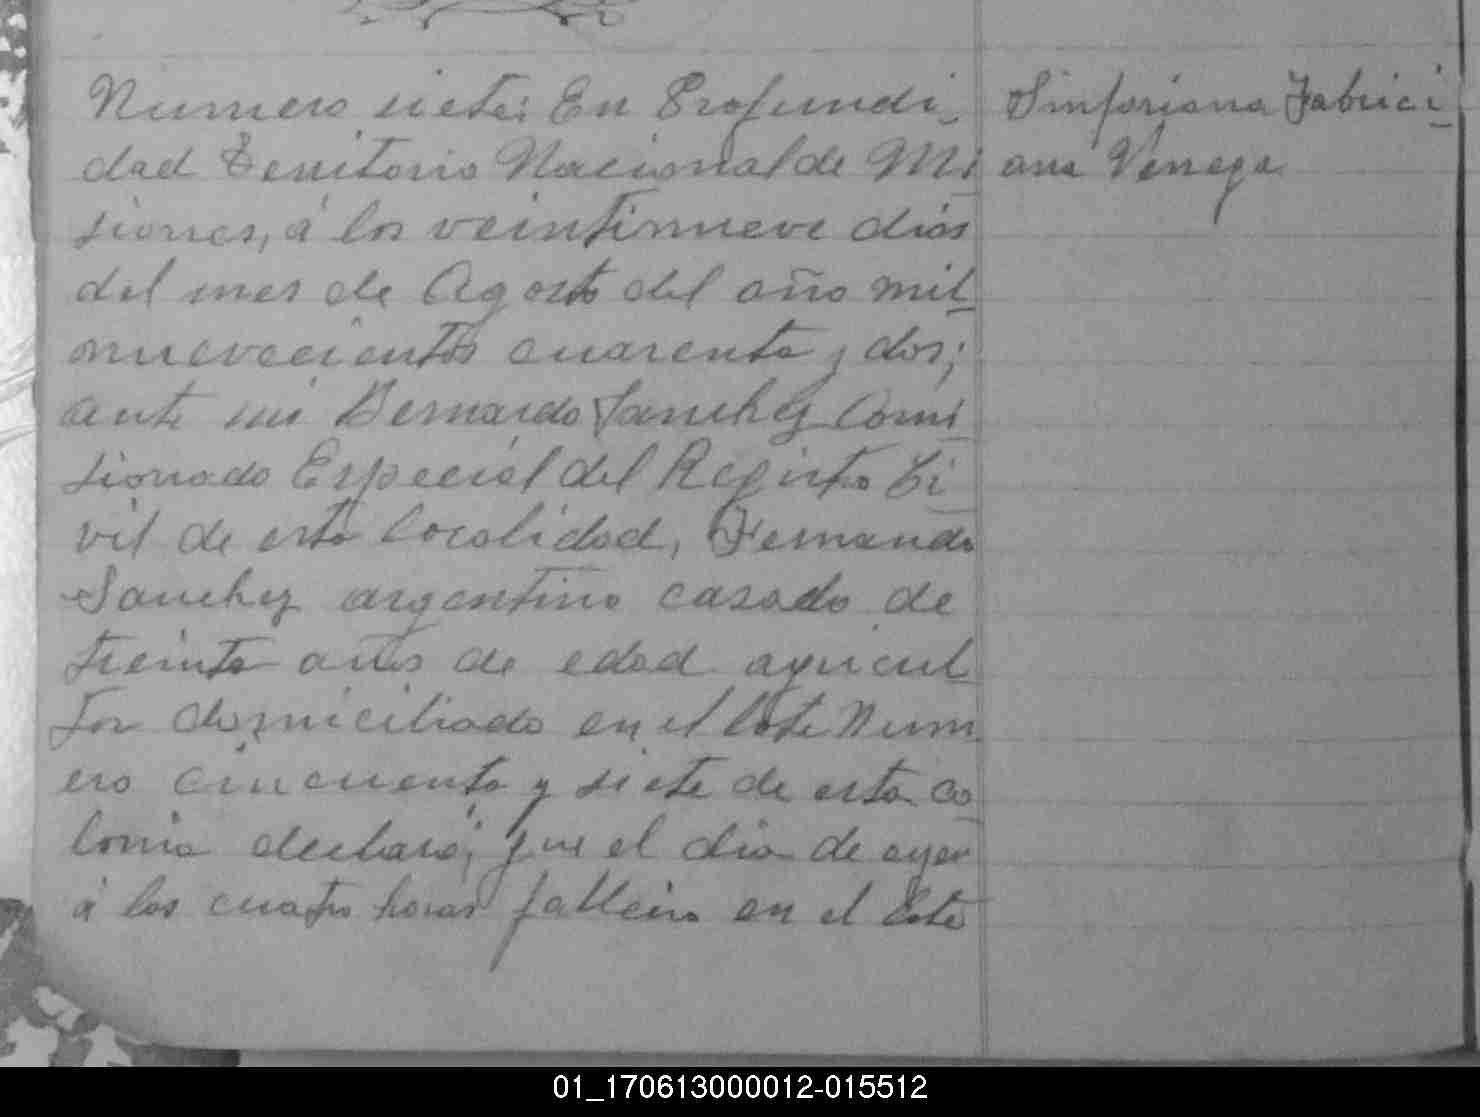 Numero siete: En Profundi-
dad Territorio Nacional de Mi-
siones, á los veintinueve dias
del mes de Agosto del año mil
nuevecientos cuarenta y dos;
ante mi Bernardo Sanchez Comi-
sionado Especial del Registro Ci-
vil de esta localidad, Fernando
Sanchez argentino casado de
treinta años de edad agricul-
tor domiciliado en el lote Num-
ero cincuenta y siete de esta co-
lonia declaró; que el dia de ayer
á las cuatro horas fallecio en el lote
Sinforiana Fabrici-
ana Venega
01_170613000012-015512